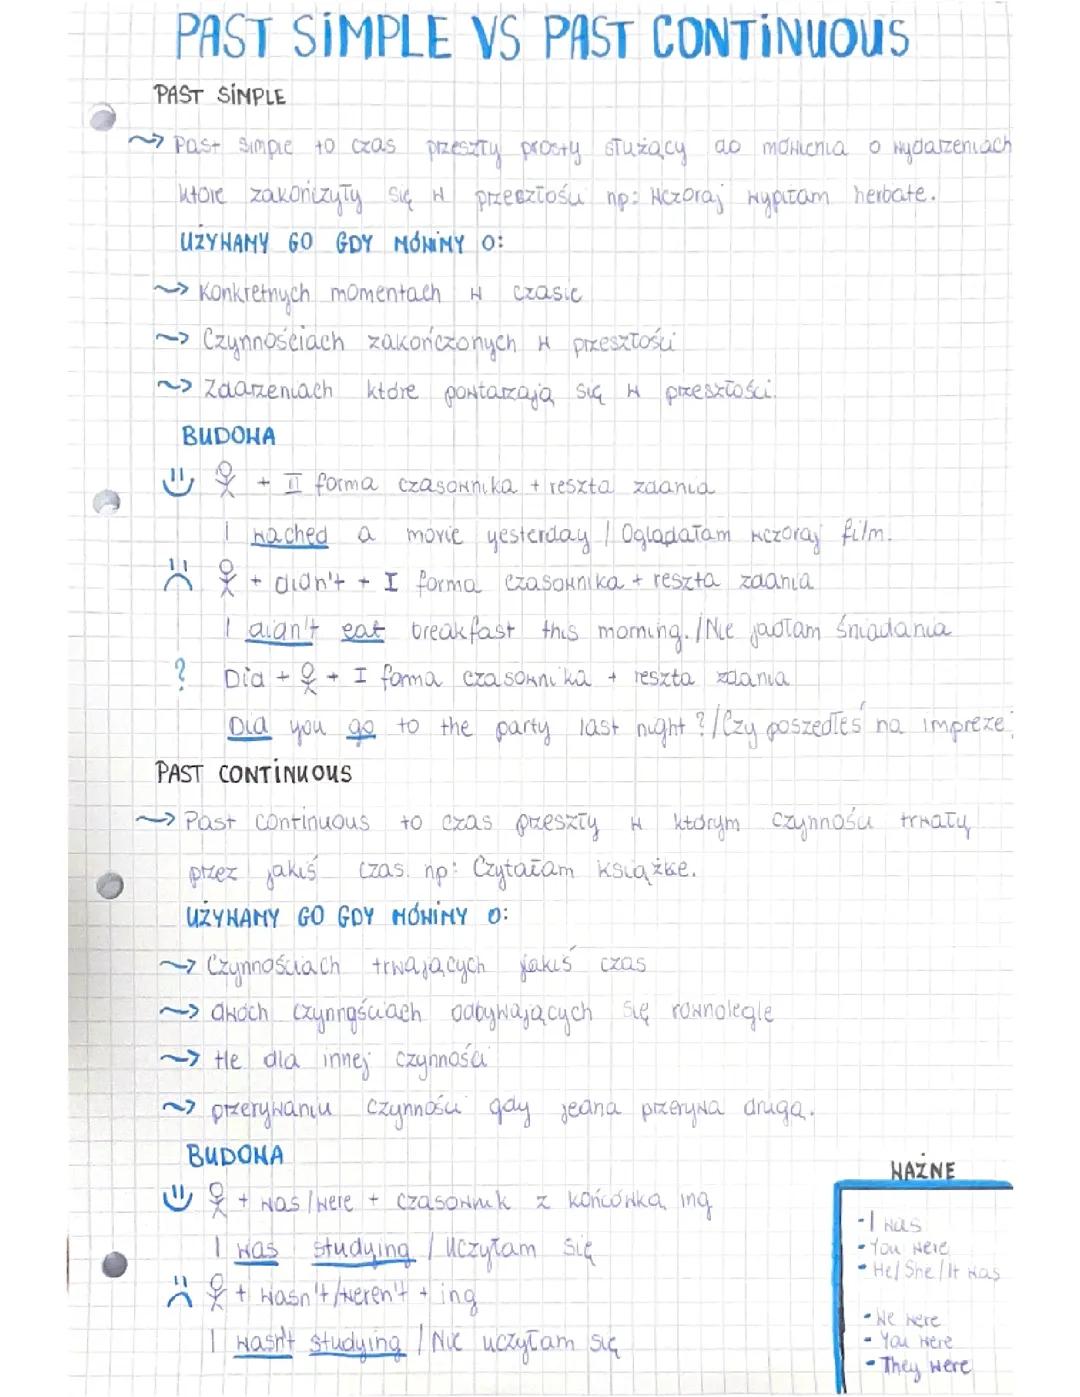 PAST SIMPLE VS PAST CONTINUOUS
PAST SIMPLE
~> Past simple to czas przeszły prosty służący do mówienia o wydarzeniach
które zakończyły się w przeszłości np: Wczoraj wypiłam herbate.
UŻYWAMY GO GDY MÓWIMY O:
~> Konkretnych momentach w czasie
~> Czynnościach zakończonych w przeszłości
~> Zdarzeniach które powtarzają się w przeszłości.
BUDOWA
+ II forma czasownika + reszta zdania
I wached a movie yesterday / Oglądałam wczoraj film.
+ didn't + I forma czasownika + reszta zdania
I didn't eat breakfast this morning. / Nie jadłam śniadania
? Did + + I forma czasownika + reszta zdania
Did you go to the party last night? / Czy poszedłeś na impreze?
PAST CONTINUOUS
~> Past continuous to czas przeszły w którym czynności trwały
przez jakiś czas. np: Czytałam książke.
UŻYWAMY GO GDY MÓWIMY O:
~> Czynnościach trwających jakiś czas
~> dwóch czynnościach odbywających się równolegle
~> tle dla innej czynności
~> przerywaniu czynności gdy jedna przerywa drugą.
BUDOWA
+ was/were + czasownik z końcówką ing
I was studying / Uczyłam się
+ wasn't/weren't + ing
I wasn't studying / Nie uczyłam się
WAŻNE
- I was
- You were
- He/She/It was
- We were
- You were
- They were